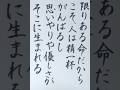 限りある命だから
こそ、人は精一杯
がんばるし
思いやりや優しさが
そこに生まれる